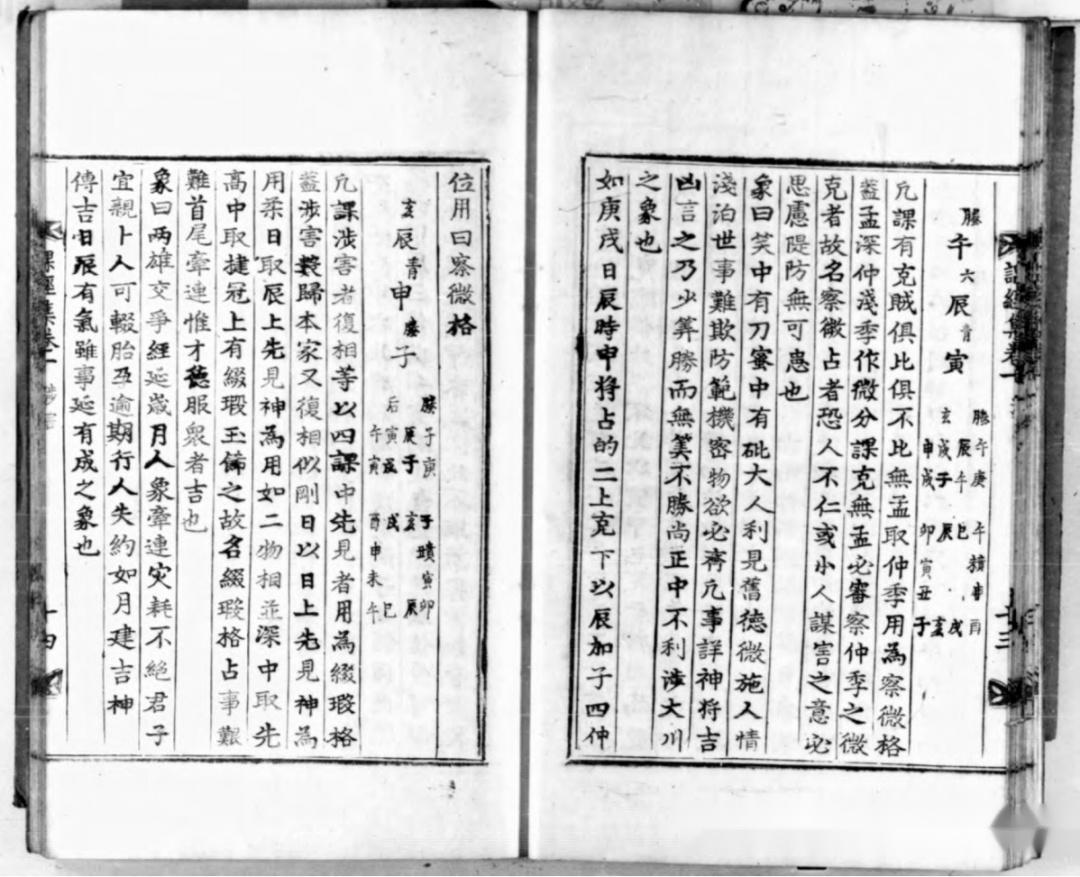 螣午六辰青寅
凡課有克賊俱比俱不比無孟取仲季用為察微格
蓋孟深仲淺季作微分課克無孟必審察仲季之微
克者故名察微占者恐人不仁或小人謀害之意必
思慮隄防無可患也
象曰笑中有刀蜜中有砒大人利見舊德微施人情
淺泊世事難欺防範機密物欲必濟凡事詳神将吉
凶言之乃少筭勝而無筭不勝尚正中不利涉大川
之象也
如庚戌日辰時申将占的二上克下以辰加子四仲
位用曰察微格
玄辰青申螣子
凡課涉害者復相等以四課中先見者用為綴瑕格
蓋涉害裁歸本家又復相似剛日以日上先見神為
用柔日取辰上先見神為用如二物相並深中取先
高中取捷冠上有綴瑕玉飾之故名綴瑕格占事艱
難首尾牽連惟才德服衆者吉也
象曰兩雄交爭經延歲月人象牽連灾耗不絕君子
宜親卜人可輟胎孕逾期行人失約如月建吉神
傳吉日辰有氣雖事延有成之象也
課經集卷二
十四